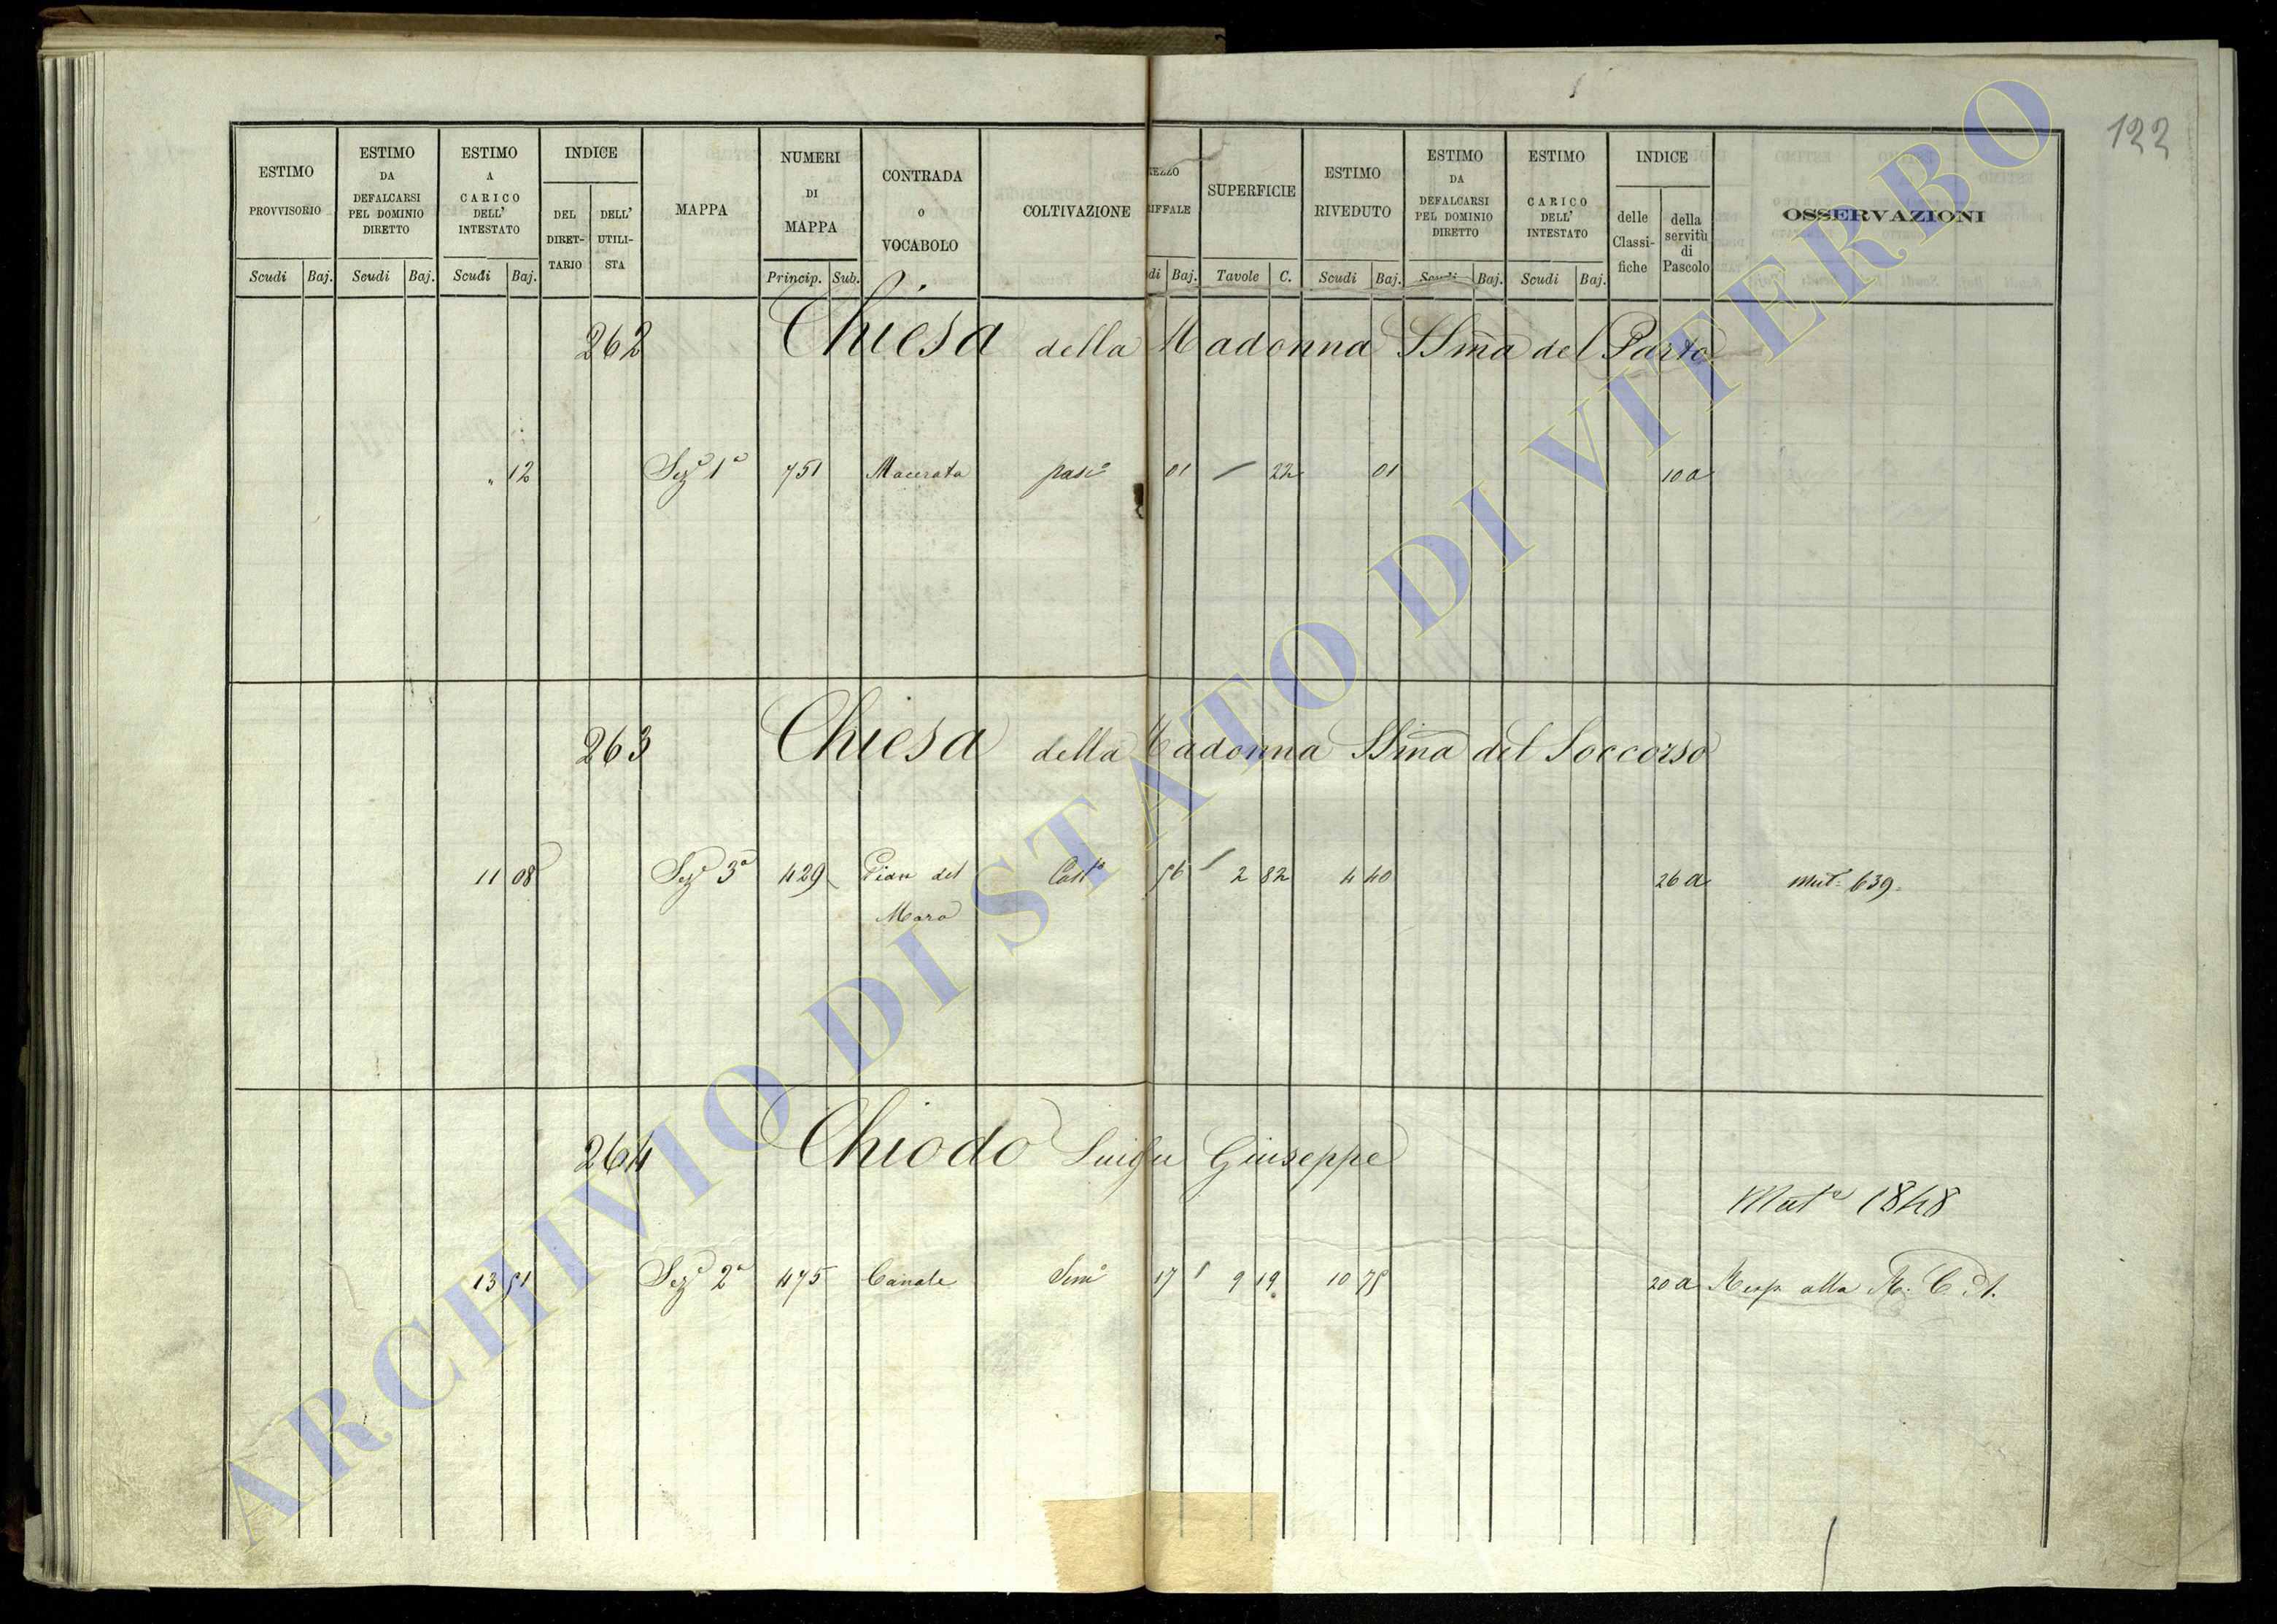 122
ESTIMO PROVVISORIO
ESTIMO DA DEFALCARSI PEL DOMINIO DIRETTO
ESTIMO A CARICO DELL' INTESTATO
INDICE
DEL DIRET-TARIO
DELL' UTILI-STA
MAPPA
NUMERI DI MAPPA
CONTRADA o VOCABOLO
COLTIVAZIONE
EZZO IFFALE
SUPERFICIE
ESTIMO RIVEDUTO
ESTIMO DA DEFALCARSI PEL DOMINIO DIRETTO
ESTIMO CARICO DELL' INTESTATO
INDICE
delle Classi-fiche
della servitù di Pascolo
OSSERVAZIONI
Scudi Baj. Scudi Baj. Scudi Baj. Princip. Sub. di Baj. Tavole C. Scudi Baj. Scudi Baj. Scudi Baj.
262 Chiesa della Madonna SSma del Parto
" 12 Sezе 1a 751 Macerata pasc 01 / 22 01 10 a
263 Chiesa della Madonna SSma del Soccorso
11 08 Seze 3a 429 Pian del 56 2 82 4 40 26 a Mut. 639
Maro
264 Chiodo Luigi Giuseppe
Mut 1848
13 51 Seze 2a 475 Canale Sem 17 9 19 10 78 20 a Resp. alla R. C. A.
ARCHIVIO DI STATO DI VITERBO